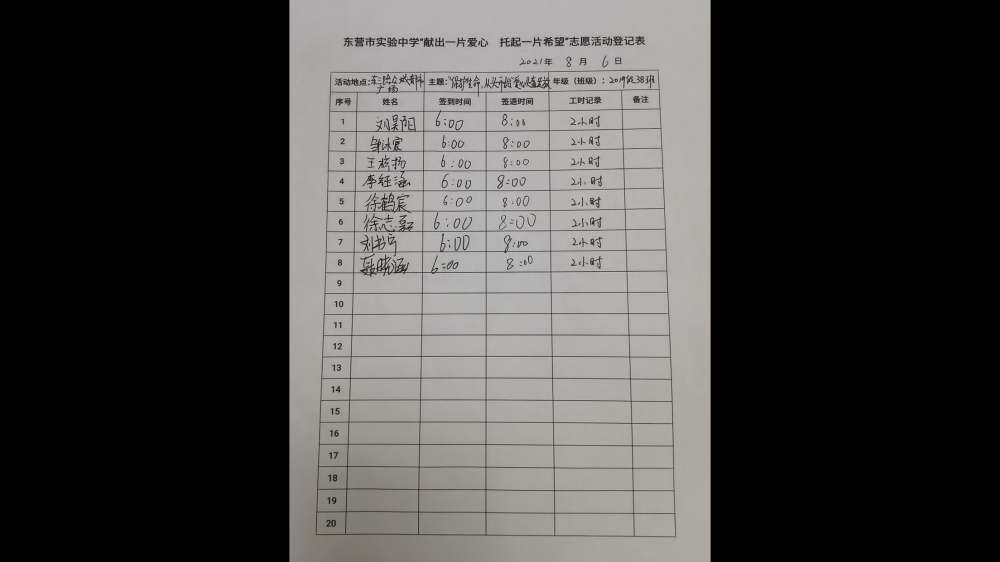 东营市实验中学“献出一片爱心 托起一片希望”志愿活动登记表
2021年 8 月 6 日
活动地点: 广场 主题: 年级(班级): 2019级38班
序号 姓名 签到时间 签退时间 工时记录 备注
1 刘昊阳 6:00 8:00 2小时
2 邹沐宸 6:00 8:00 2小时
3 王 扬 6:00 8:00 2小时
4 李 涵 6:00 8:00 2小时
5 徐鹤宸 6:00 8:00 2小时
6 徐志磊 6:00 8:00 2小时
7 刘书宁 6:00 8:00 2小时
8 聂晓涵 6:00 8:00 2小时
9
10
11
12
13
14
15
16
17
18
19
20